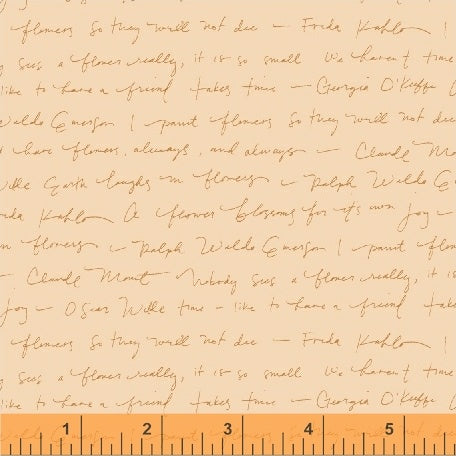 flowers So they will not die — Frida Kahlo I
sees a flower really, it is so small We haven't time
like to have a friend takes time — Georgia O'Keeffe
Waldo Emerson I paint flowers So they will not die
have flowers, always, and always — Claude Mo
Earth laughs in flowers — Ralph Waldo E
Kahlo A flower blossoms for its own joy —
in flowers — Ralph Waldo Emerson I paint flow
— Claude Monet Nobody sees a flower really, it is
joy — Oscar Wilde time — like to have a friend take
flowers So they will not die — Frida Kahlo I
sees a flower really, it is so small We haven't time
like to have a friend takes time — Georgia O'Keeffe
1 2 3 4 5